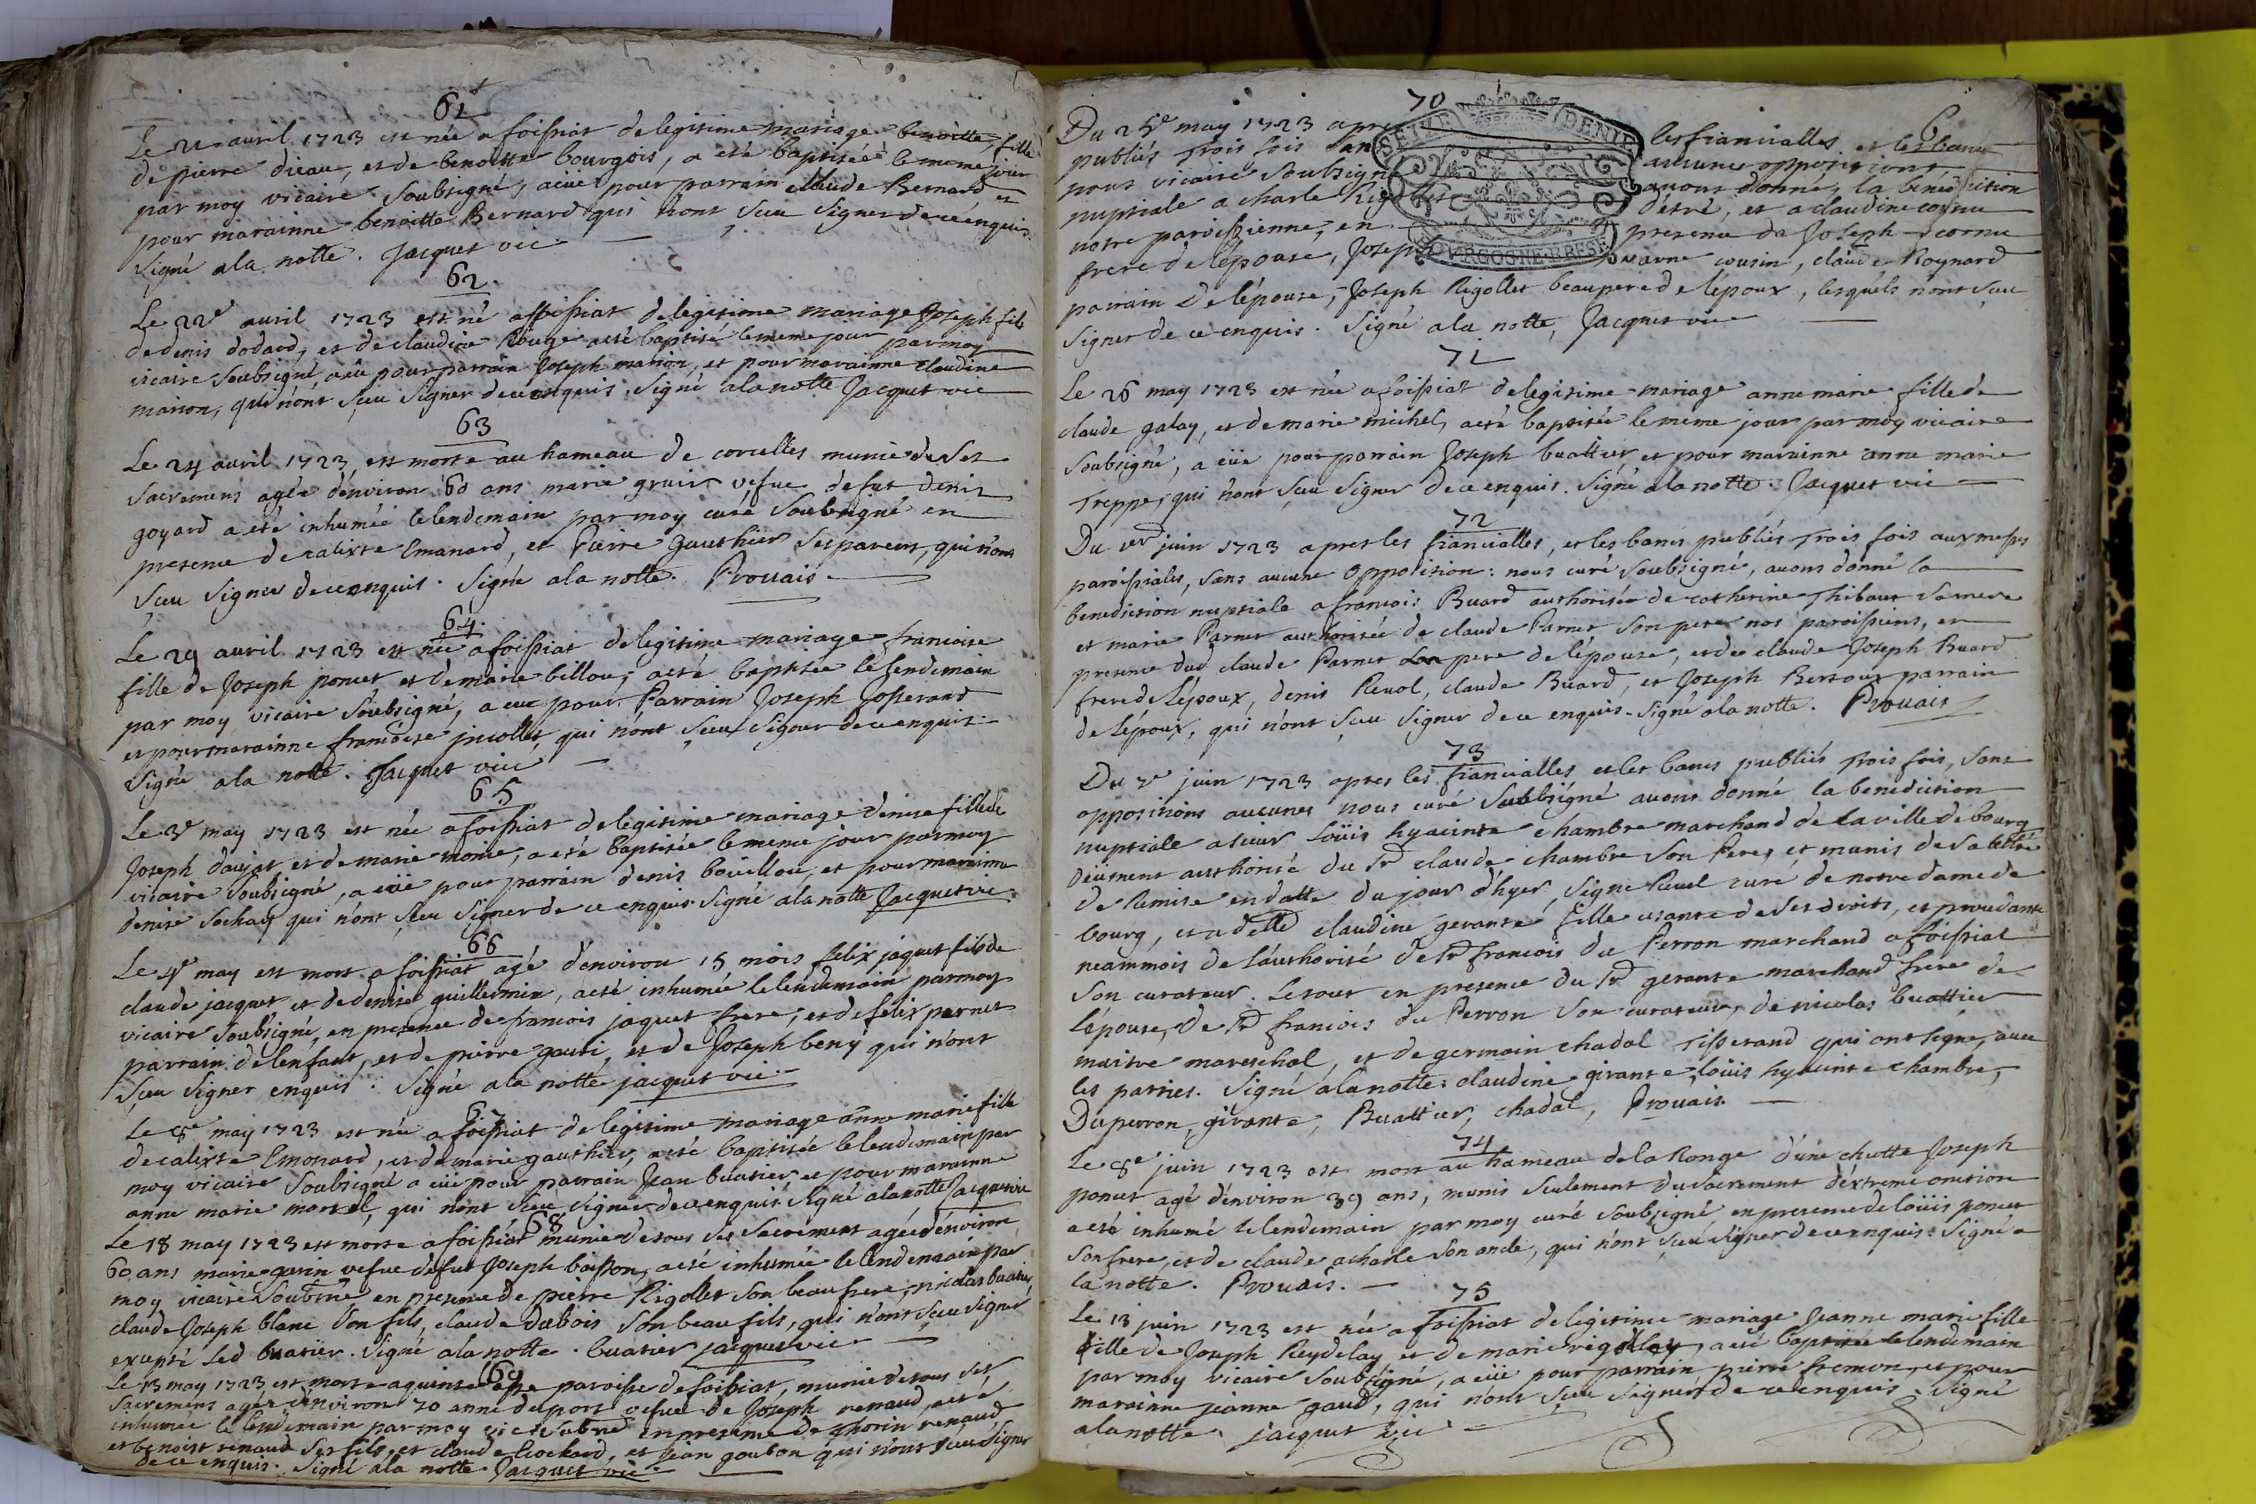 61
Le 21 avril 1723 est née a foissiat de legitime mariage benoitte, fille
de pierre dieau, et de benoitte bourgois, a eté baptiséé le meme jour
par moy vicaire Soubsigné, a eüe pour parrain claude Bernard et
pour marainne benoitte Bernard qui n'ont sceu signer de ce enquis.
Signé a la notte. Jacquet vic
62
Le 22e avril 1723 est né a foissiat de legitime mariage Joseph fils
de denis dodard, et de claudine Rouge a eté baptisé le meme jour par moy
vicaire Soubsigné, a eü pour parrain Joseph manon, et pour marainne claudine
manon, qui n'ont sceu signer de ce enquis. Signé a la notte Jacquet vic
63
Le 24 avril 1723, est morte au hameau de corcelles munie de ses
Sacremens agée d'environ 60 ans marie vefue de fut denis
goyard a eté inhumée le lendemain par moy curé Soubsigné en
presence de calixte Emanard, et Pierre Gauthier ses parens, qui n'ont
sceu signer de ce enquis. Signé a la notte. Prouais
64
Le 29 avril 1723 est née a foissiat de legitime mariage francoise
fille de Joseph poncet et de marie billou, a eté baptisée le lendemain
par moy vicaire Soubsigné, a eue pour Parrain Joseph Josserand
et pour marainne francoise jnollet, qui n'ont sceu signer de ce enquis.
Signé a la notte. Jacquet vic
65
Le 3e may 1723 est née a foissiat de legitime mariage denise fille de
Joseph daujat et de marie moine, a eté baptisée le meme jour par moy
vicaire soubsigné, a eüe pour parrain denis bouillou, et pour marainne
denise Sochay qui n'ont sceu signer de ce enquis. Signé a la notte Jacquet vic
66
Le 4e may est mort a foissiat agé d'environ 15 mois felix jaquet fils de
claude jacquet et de denise guillermin, a eté inhumée le lendemain par moy
vicaire Soubsigné, en presence de francois jaquet frere, et de felix parnet
parrain de l'enfant, et de pierre gauti, et de Joseph beny qui n'ont
sceu signer enquis. Signé a la notte jacquet vic
67
Le 8e may 1723 est née a foissiat de legitime mariage anne marie fille
de calixte Emonard, et de marie gauthier, a eté baptisée le lendemain par
moy vicaire Soubsigné a eüe pour parrain Jean buatier et pour marainne
anne marie martel, qui n'ont sceu signer de ce enquis Signé a la notte Jacquet vic
68
Le 18 may 1723 est morte a foissiat munie de tous ses Sacremens agée d'environ
60 ans marie garin vefue de fut Joseph boisson, a eté inhumée le lendemain par
moy vicaire Soubsné en presence de pierre Rigollet son beau frere, nicolas buatier,
claude Joseph blanc son fils, claude dubois son beau fils, qui n'ont sceu signer
excepté led buatier. Signé a la notte. buatier jacquet vic
69
Le 13 may 1723 est morte a paroisse de foissiat, munie de tous ses
Sacremens agée d'environ 70 anne duport vefue de Joseph renaud, a eté
inhumée le lendemain par moy vic soubné en presence de thorin renaud
et benoist renaud ses fils, et claude brochard, et jean goubon qui n'ont sceu signer
de ce enquis. Signé a la notte Jacquet vic
6
70
Du 25e may 1723 apre les fiancialles et les bancs
publiés trois fois san aucunes oppositions
nous vicaire Soubsigné avons donné, la bénédiction
nuptiale a charle Rigollet d'étré, et a claudine cornu
notre paroissienne, en presence da Joseph cornu
frere de l'épouse, Joseph cousin, claude Roynard
parrain de l'épouse, Joseph Rigollet beaupere de l'époux, lesquels n'ont sceu
signer de ce enquis. Signé a la notte, Jacquet vic
GENE DENIE
BOVRGOSNE BRESE
71
Le 26 may 1723 est née a foissiat de legitime mariage anne marie fille de
claude galay, et de marie michel, a eté baptisée le meme jour par moy vicaire
Soubsigné, a eüe pour parrain Joseph buattier et pour marainne anne marie
Treppe, qui n'ont sceu signer de ce enquis. Signé a la notte. Jacquet vic
72
Du 1er juin 1723 apres les fiancialles, et les bancs publiés trois fois aux messes
paroissiales, sans aucune opposition: nous curé Soubsigné, avons donné la
benediction nuptiale a francois Buard authorisée de catherine Thibaut sa mere
et marie Parnet authorisée de claude Parnet son pere nos paroissiens, en
presence dud claude Parnet son pere de l'épouse, et de claude Joseph Buard
frere de l'époux, denis Revol, claude Buard, et Joseph Bertoux parrain
de l'époux, qui n'ont sceu signer de ce enquis. Signé a la notte. Prouais
73
Du 7e juin 1723 apres les fiancialles et les bancs publiés trois fois, sans
oppositions aucunes nous curé Soubsigné avons donné la benediction
nuptiale a sieur Loüis hyacinte chambre marchand de la ville de bourg
deüement authorisé du Sr claude chambre son Pere, et munis de sa lettre
de Remise en datte du jour d'hyer signé Revel curé de notre dame de
bourg, et a delle claudine gerante fille usante de ses droits, et procedante
neammois de l'authorité de Sr francois du Perron marchand a foissiat
son curateur. Le tout en presence du Sr gerante marchand frere de
l'épouse, de Sr francois du Perron son curateur, de nicolas buattier
maitre mareschal, et de germain chadal tisserand qui ont signé, avec
les parties. Signé a la notte: claudine girante, loüis hyacinte chambre,
Duperron, girante, Buattier, chadal, Prouais
74
Le 8e juin 1723 est mort au hameau de la Ronge d'une chutte Joseph
poncet agé d'environ 39 ans, munis seulement du sacrement d'éxtreme onction
a eté inhumé le lendemain par moy curé soubsigné en presence de loüis poncet
son frere, et de claude acharle son oncle, qui n'ont sceu signer de ce enquis. Signé a
la notte. Prouais.
75
Le 13 juin 1723 est née a foissiat de legitime mariage Jeanne marie fille
fille de Joseph Reydelay et de marie rigollet, a eté baptisée le lendemain
par moy vicaire Soubsigné, a eüe pour parrain pierre fremon, et pour
marainne jeanne gaud, qui n'ont sceu signer de ce enquis. Signé
a la notte. jacquet vic